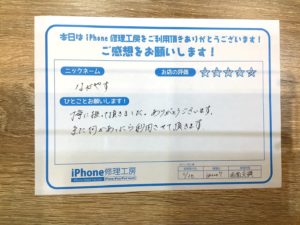 本日は iPhone 修理工房をご利用頂きありがとうございます!
ご感想をお願いします!
ニックネーム
お店の評価 ☆☆☆☆☆
はがやす
ひとことお願いします!
丁寧に扱って頂きました。ありがとうございます。
また何かあったら利用させて頂きます
iPhone修理工房
iPhone7